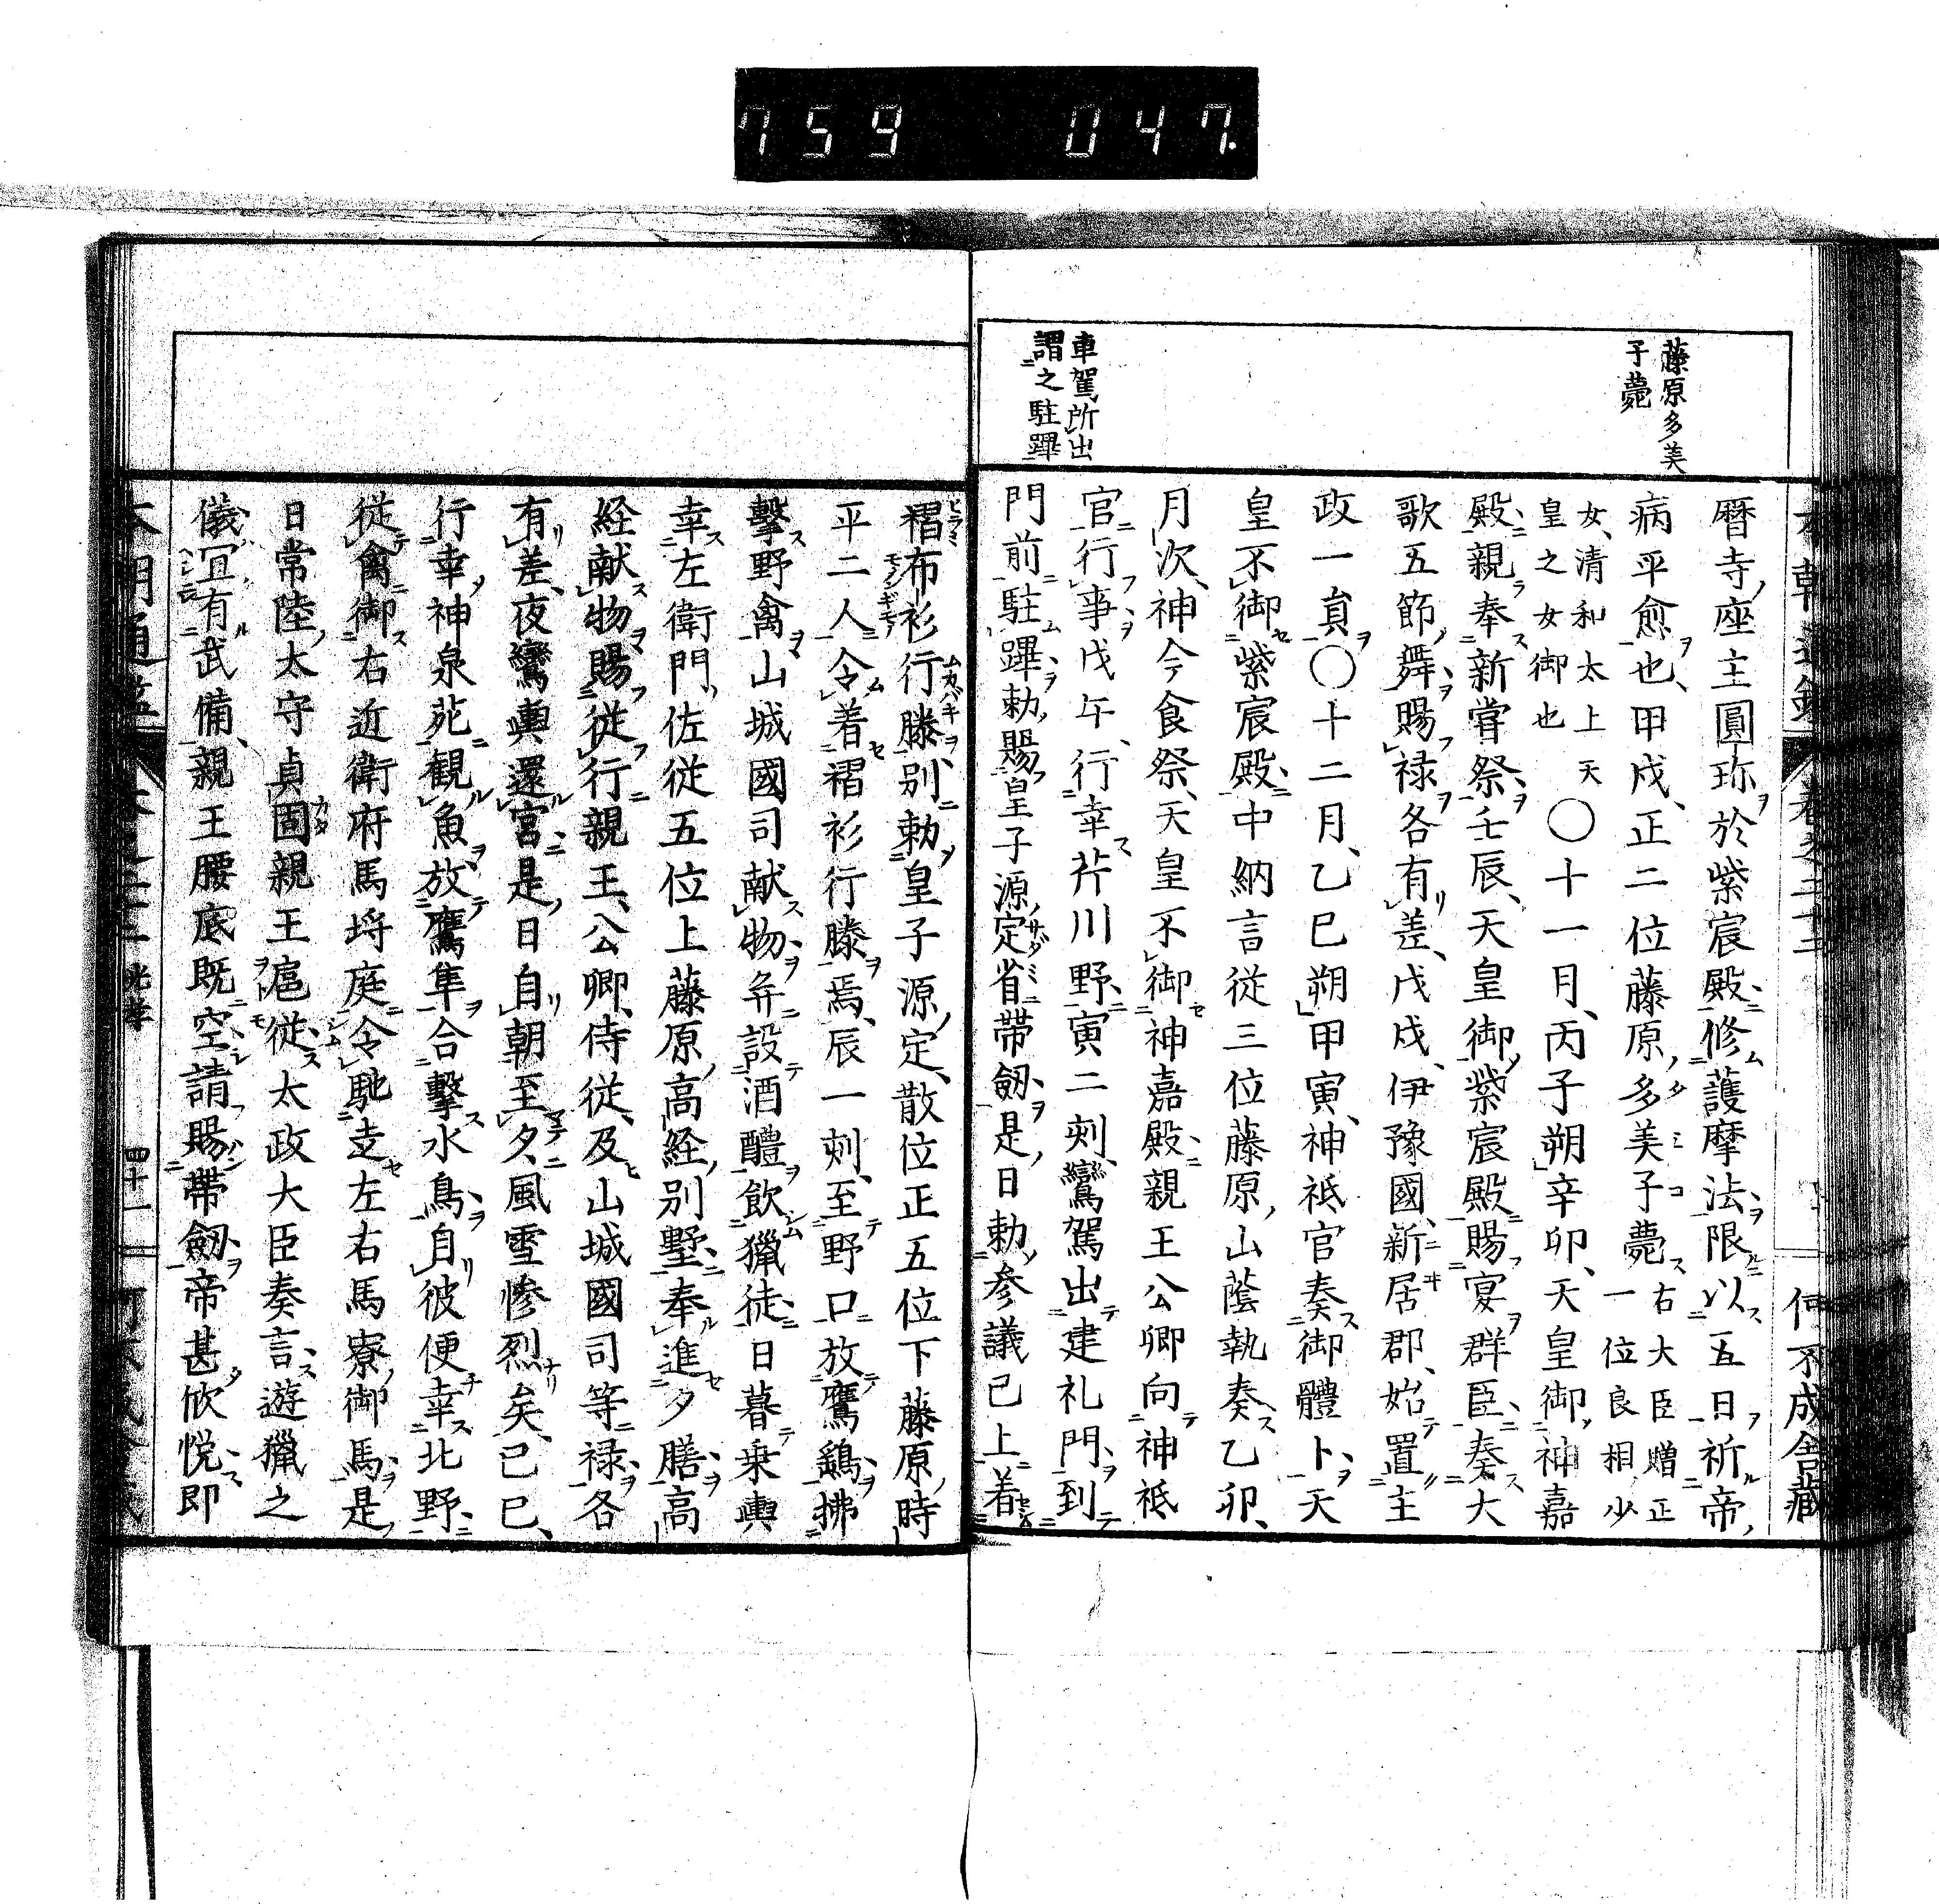 759 047.
藤原多美
子薨
車駕所出
謂之駐蹕
何不成舎蔵
暦寺座主圓珎於紫宸殿修護摩法限以五日祈帝
病平愈也甲戌正二位藤原多美子薨右大臣贈正一位良相少
女清和太上天皇之女御也〇十一月丙子朔辛卯天皇御神嘉
殿親奉新嘗祭壬辰天皇御紫宸殿賜宴群臣奏大
歌五節舞賜禄各有差戊戌伊豫國新居郡始置主
政一員〇十二月乙巳朔甲寅神祇官奏御體卜天
皇不御紫宸殿中納言従三位藤原山蔭執奏乙卯
月次神今食祭天皇不御神嘉殿親王公卿向神祇
官行事戊午行幸芹川野寅二刻鸞駕出建礼門到
門前駐蹕勅賜皇子源定省帶劔是日勅参議已上着
褶布衫行騰別勅皇子源定散位正五位下藤原時
平二人令着褶衫行騰焉辰一刻至野口放鷹鷂拂
擊野禽山城國司献物并設酒醴飲獵徒日暮乗輿
幸左衛門佐従五位上藤原高経別墅奉進夕膳高
経献物賜従行親王公卿侍従及山城國司等禄各
有差夜鸞輿還宮是日自朝至夕風雪惨烈矣己巳
行幸神泉苑観魚放鷹隼令擊水鳥自彼便幸北野
従禽御右近衛府馬埒庭令馳走左右馬寮御馬是
日常陸太守貞固親王扈従太政大臣奏言遊獵之
儀冝有武備親王腰底既空請賜帶劔帝甚忻悦即
四十一